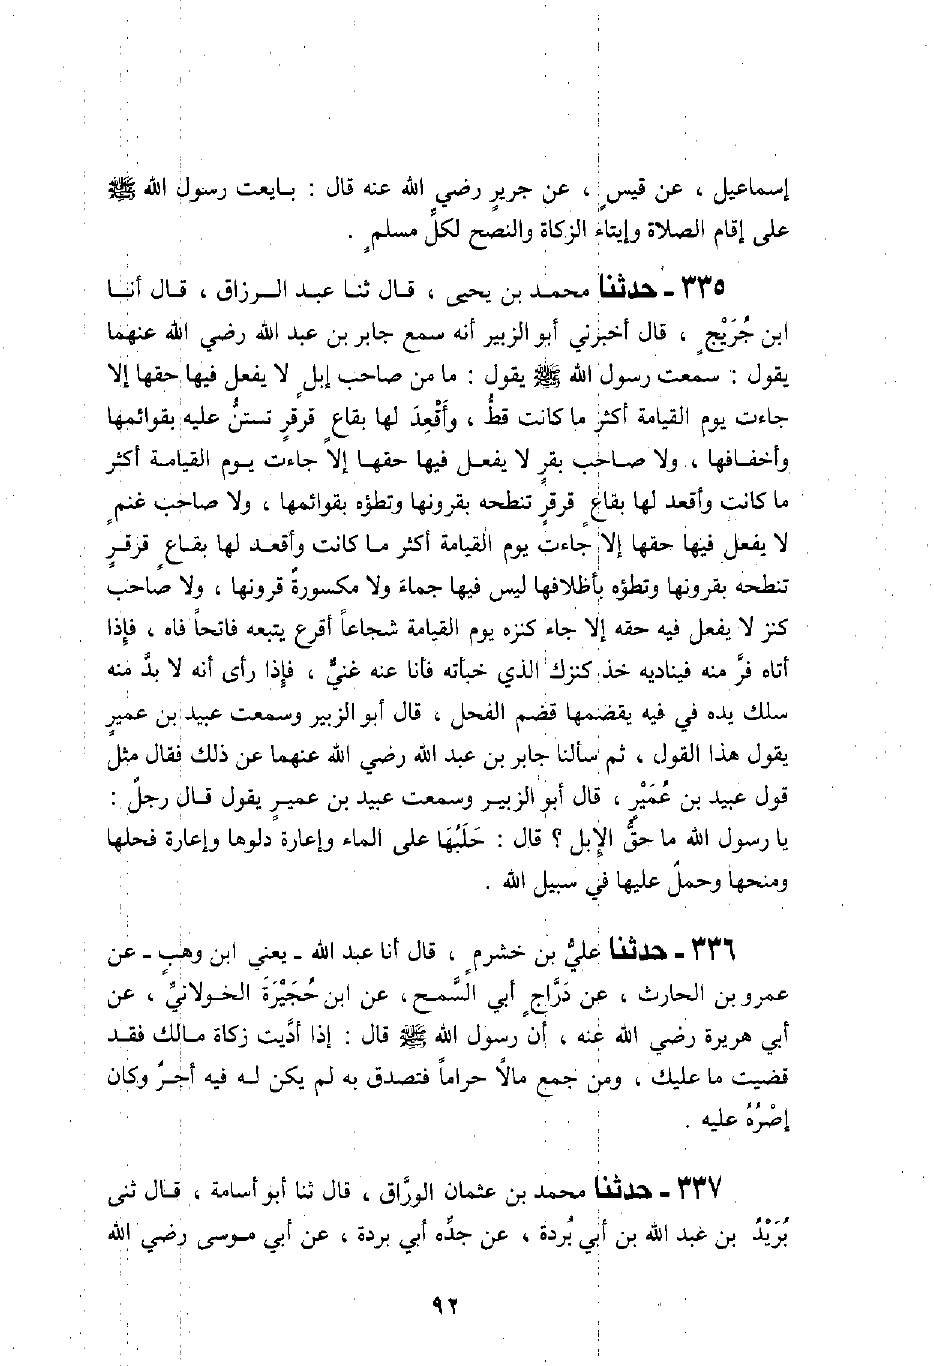 إسماعيل ، عن قيسٍ ، عن جريرٍ رضي الله عنه قال : بـايعت رسول الله ﷺ
على إقام الصلاة وإيتاء الزكاة والنصح لكلِّ مسلمٍ .
٣٣٥ ـ حدثنا محمـد بن يحيى ، قـال ثنـا عبـد الـرزاق ، قـال أنـا
ابن جُرَيْجٍ ، قال أخبرني أبو الزبير أنه سمع جابر بن عبد الله رضي الله عنهما
يقول : سمعت رسول الله ﷺ يقول : ما من صاحب إبلٍ لا يفعل فيها حقها إلا
جاءت يوم القيامة أكثر ما كانت قطُّ ، وأُقْعِدَ لها بقاعٍ قرقرٍ تستنُّ عليه بقوائمها
وأخفـافها ، ولا صـاحب بقرٍ لا يفعـل فيها حقهـا إلا جاءت يـوم القيامـة أكثر
ما كانت وأقعد لها بقاعٍ قرقرٍ تنطحه بقرونها وتطؤه بقوائمها ، ولا صاحب غنمٍ
لا يفعل فيها حقها إلا جاءت يوم القيامة أكثر مـا كانت وأقعـد لها بقـاعٍ قرقـرٍ
تنطحه بقرونها وتطؤه بأظلافها ليس فيها جماءَ ولا مكسورةً قرونها ، ولا صاحب
كنز لا يفعل فيه حقه إلا جاء كنزه يوم القيامة شجاعاً أقرع يتبعه فاتحاً فاه ، فإذا
أتاه فرَّ منه فيناديه خذ كنزك الذي خبأته فأنا عنه غنيٌّ ، فإذا رأى أنه لا بدَّ منه
سلك يده في فيه يقضمها قضم الفحل ، قال أبو الزبير وسمعت عبيد بن عميرٍ
يقول هذا القول ، ثم سألنا جابر بن عبد الله رضي الله عنهما عن ذلك فقال مثل
قول عبيد بن عُمَيْرٍ ، قال أبو الزبيـر وسمعت عبيد بن عميـرٍ يقول قـال رجلٌ :
يا رسول الله ما حقُّ الإبل ؟ قال : حَلَبُهَا على الماء وإعارة دلوها وإعارة فحلها
ومنحها وحملٌ عليها في سبيل الله .
٣٣٦ ـ حدثنا عليُّ بن خشرمٍ ، قال أنا عبد الله ـ يعني ابن وهبٍ ـ عن
عمرو بن الحارث ، عن دَرَّاجٍ أبي السَّمـح ، عن ابن حُجَيْرَةَ الخـولانيِّ ، عن
أبي هريرة رضي الله عنه ، أن رسول الله ﷺ قال : إذا أدَّيت زكاة مـالك فقـد
قضيت ما عليك ، ومن جمع مالاً حراماً فتصدق به لم يكن لـه فيه أجـرٌ وكان
إصْرُهُ عليه .
٣٣٧ ـ حدثنا محمد بن عثمان الورَّاق ، قال ثنا أبو أسامة ، قـال ثنى
بُرَيْدُ بن عبد الله بن أبي بُردة ، عن جدِّه أبي بردة ، عن أبي مـوسى رضي الله
٩٢